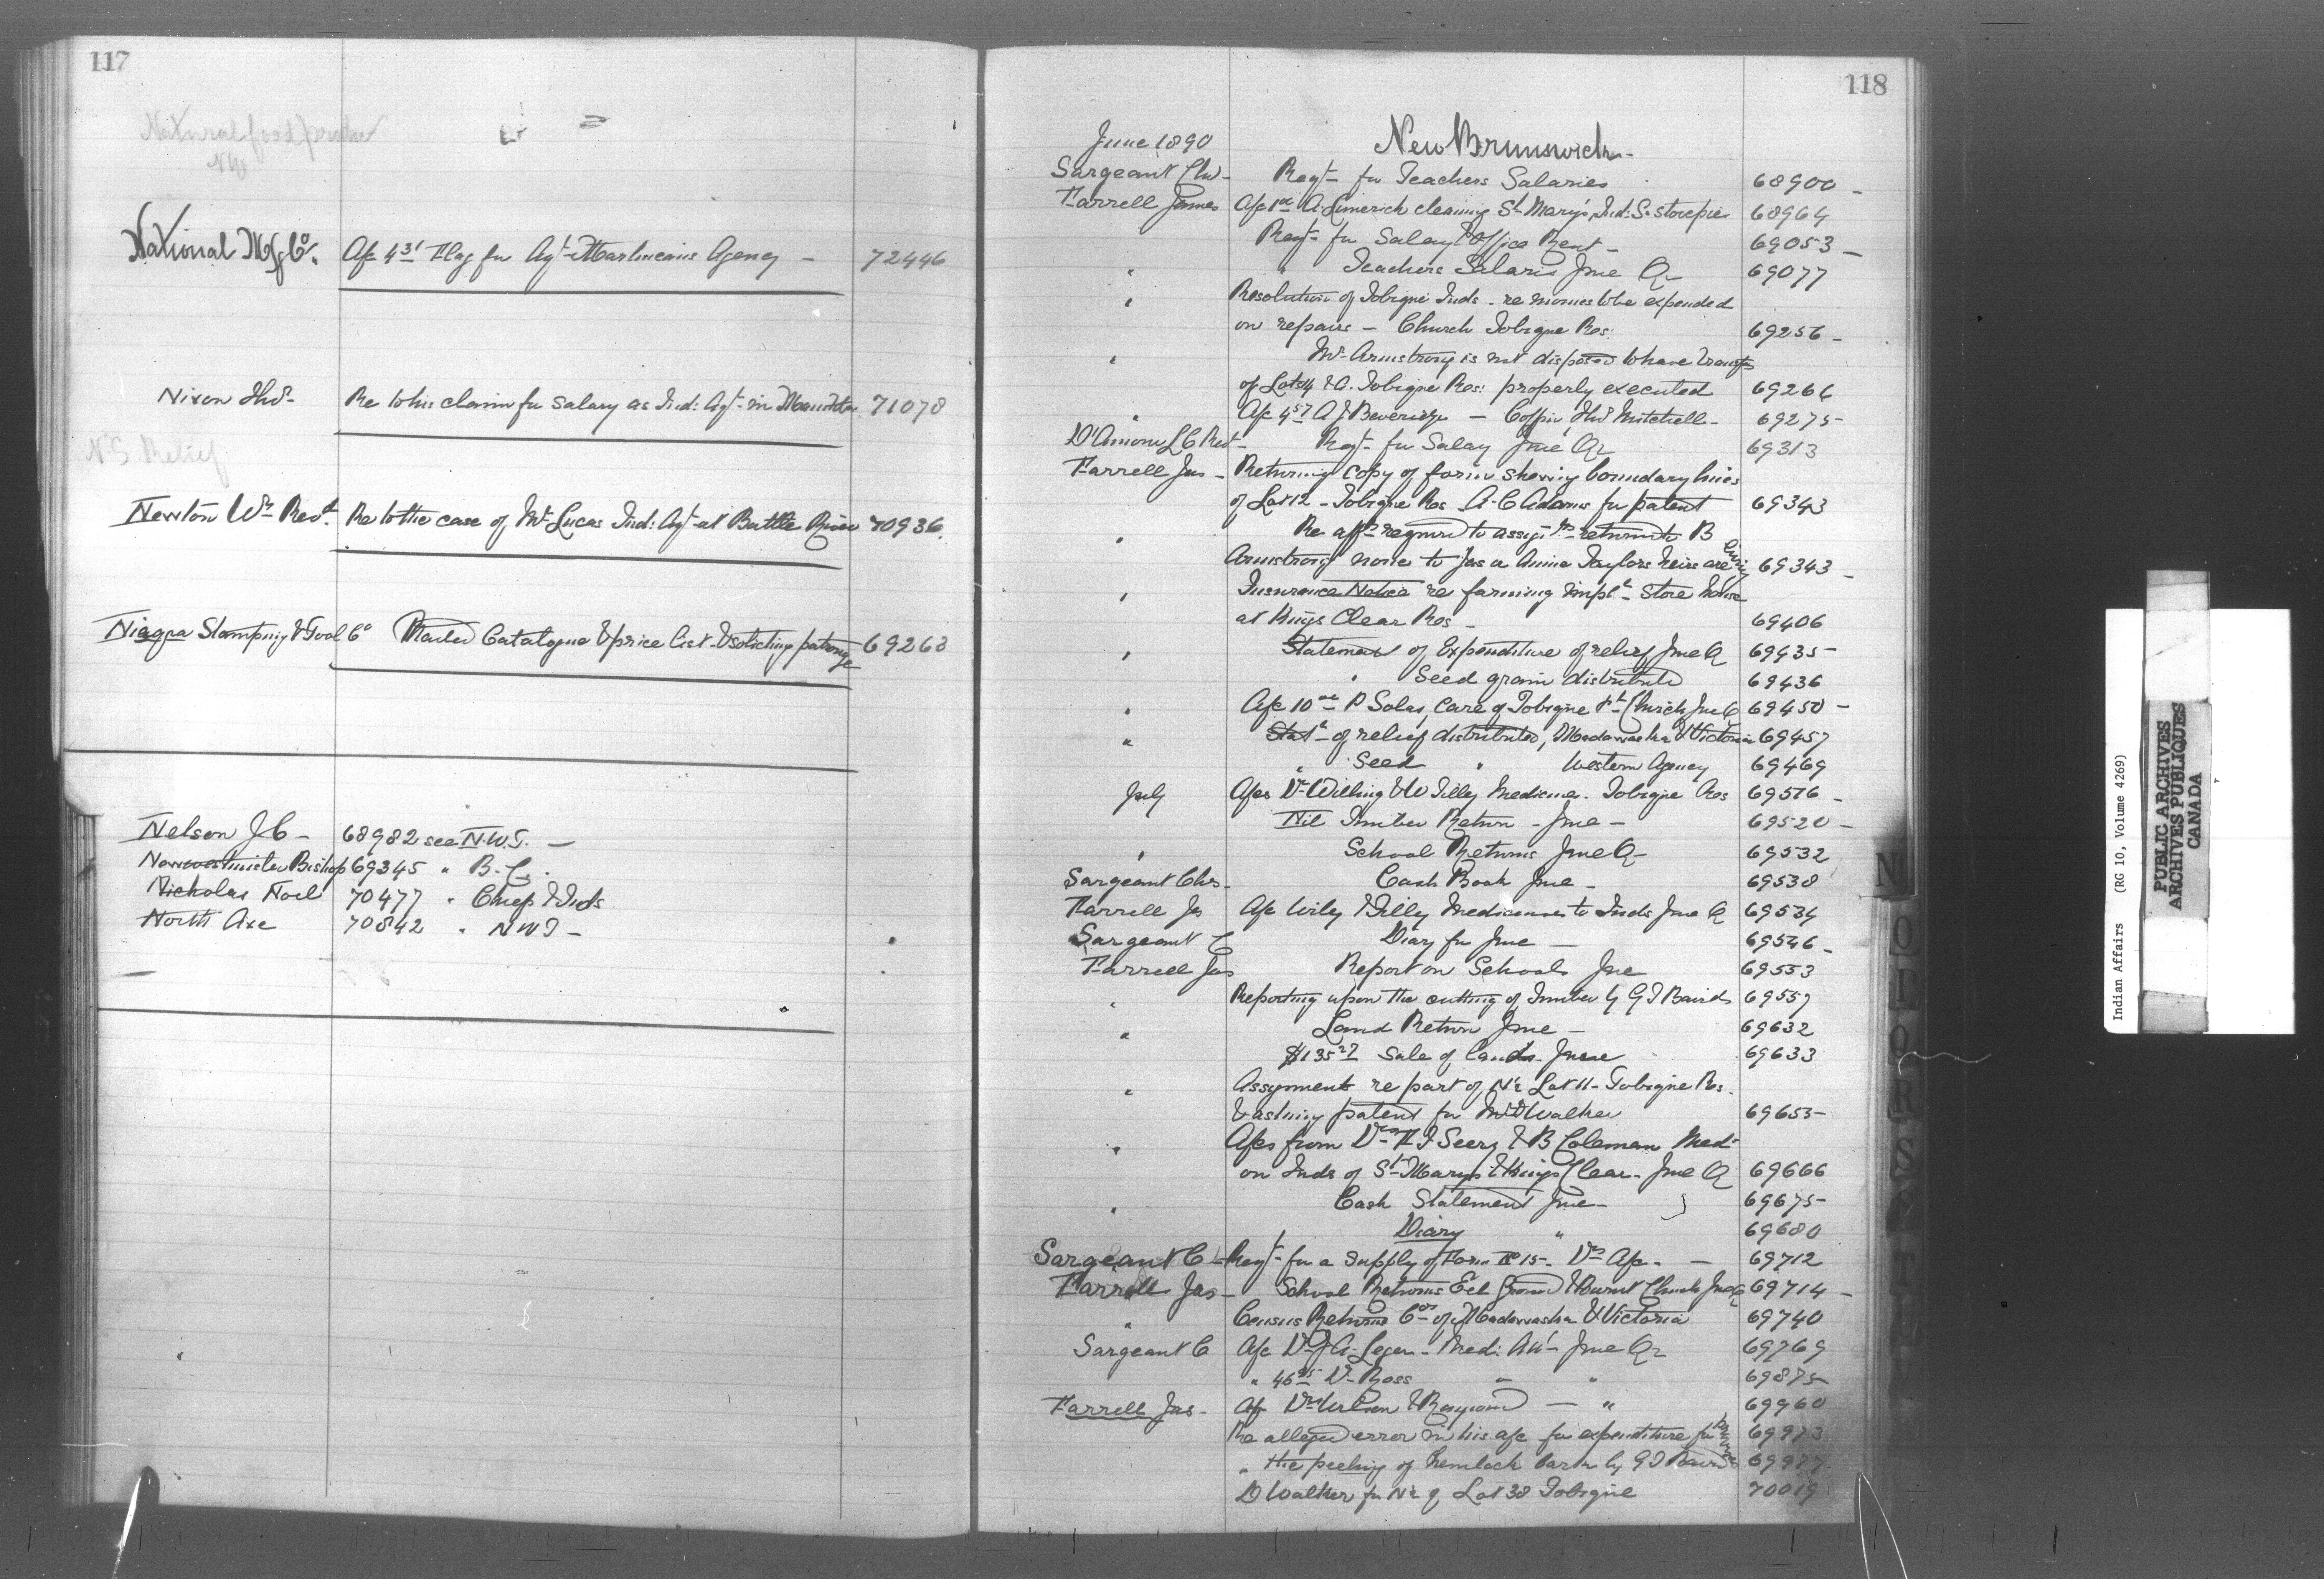 117
Natural food
NW
National Mfg Co. A/c 4 31 Flag for Agt Martineau's Agency — 72446
Nixon Thos Re to his claim for salary as Ind: Agt in Manitoba 71078
N.S. Relief
Newton Wm Revd. Re to the case of Mr Lucas Ind: Agt at Battle River 70936
Niagra Stamping & Tool Co Mailed Catalogue & price list & soliciting patronage 69263
Nelson J C — 68982 see N.W.T. —
Newwestminster Bishop 69345 " B.C.
Nicholas Noel 70477 " Chiefs & Inds
North Axe 70842 " NWT —
118
June 1890 New Brunswick
Sargeant Chs Reqt for Teachers Salaries 68900 —
Farrell James A/c A. Limerick cleaning St Mary's Ind: S. 68964
Reqt for Salary & Office Rent — 69053 —
" " Teachers Salaries Jne Qr 69077
" Resolution of Tobique Inds — re monies to be expended
on repairs — Church Tobique Res: 69256 —
" Mr Armstrong is not disposed to have transfs
of Lots 4 & A. Tobique Res: properly executed 69266
" A/c 4 57 A J Beveridge — Coffin, Thos Mitchell — 69275 —
D'Amour L C Revt — Reqt for Salary Jne Qr 69313
Farrell Jas — Returning copy of form showing boundary lines
of Lot 12 — Tobique Res A. C Adams for patent 69343
" Re affts required to assigts returned to B
Armstrong none to Jas or Annie Taylors heirs are living 69343 —
" Insurance Notice re farming implts store house
at Kings Clear Res — 69406
" Statement of Expenditure of relief Jne Q 69435 —
" Seed grain distributed 69436
" A/c 10 00 P Solas, Care of Tobique Pt Church Jne Q 69450 —
" Statt of relief distributed, Madawaska & Victoria 69457
" Seed " Western Agency 69469
July A/cs Dr Welling & W Tilley Medicines. Tobique Res 69516 —
Nil Timber Return — Jne — 69520 —
" School Returns Jne Q — 69532
Sargeant Chs — Cash Book Jne — 69538
Farrell Js A/c Wiley & Tilley Medicines to Inds Jne Q 69534
Sargeant C Diary for Jne — 69546 —
Farrell Jas Report on Schools Jne 69553
" Reporting upon the cutting of Timber by G T Baird 69557
" Land Return Jne — 69632
$1135 27 Sale of lands. June 69633
" Assignments re part of N½ Lot 11 — Tobique Res.
& asking patent for Walker 69655
" A/cs from Drs H J Seery & B Coleman Med:
on Inds of St Marys & Kings Clear. Jne Q 69666
" Cash Statement Jne — 69675 —
Diary " 69680
Sargeant C — Reqt for a supply of Form No 15 — Drs A/c. — 69712
Farrell Jas — School Returns Eel Ground & Burnt Church Jne Q 69714 —
" Census Returns Cos of Madawaska & Victoria 69740
Sargeant C A/c Dr J A. Leger — Med: Att Jne Qr 69769
" 46 25 Dr Ross " " 69875
Farrell Jas. A/c Drs & — " 69960
Re alleged error in his a/c for expenditure for 69973
" the peeling of hemlock bark by G T Baird 69987
D Walker for N½ of Lot 38 Tobique 70019
N
Indian Affairs (RG 10, Volume 4269)
PUBLIC ARCHIVES
ARCHIVES PUBLIQUES
CANADA